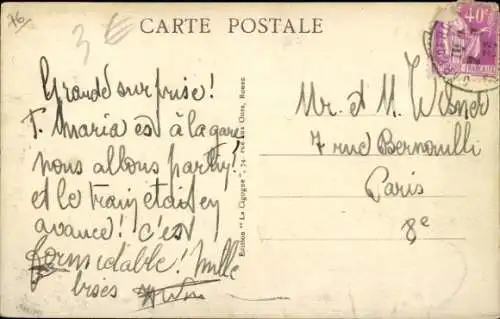 76
CARTE POSTALE
40c
3 €
Grande surprise!
T. Maria est à la gare
nous allons partir!
et le train était en
avance! c'est
formidable! Mille
bises
Mr. et M. Wisner
7 rue Bernouilli
Paris
8e
Edition "La Cigogne", 74, rue aux Ours, Rouen